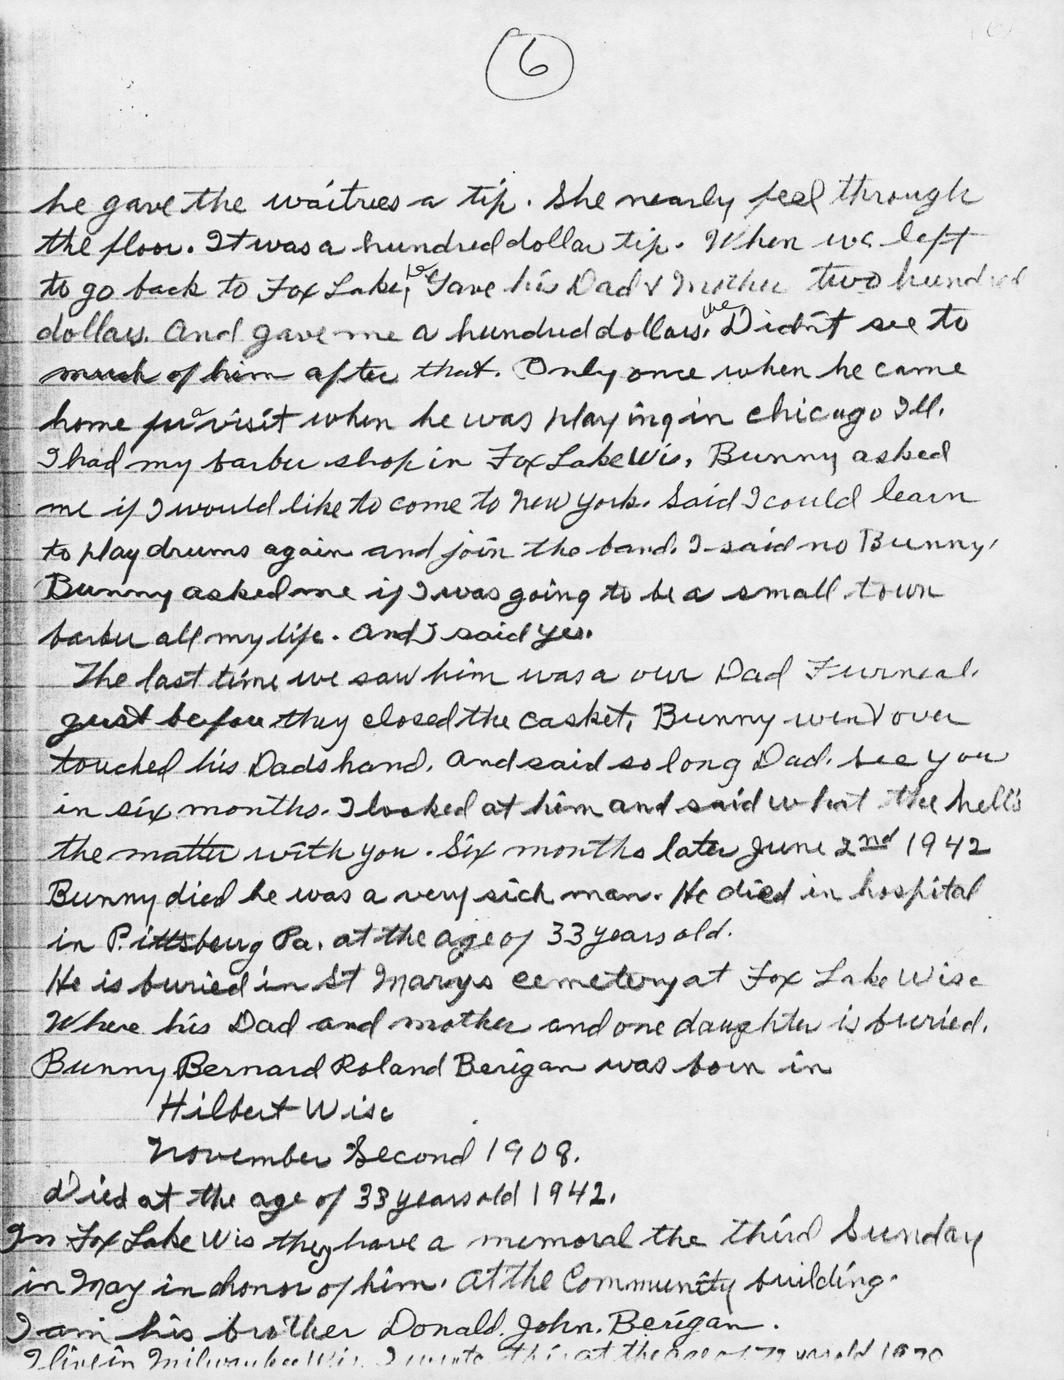 6
he gave the waitrees a tip. She nearly feel through
the floor. It was a hundred dollar tip. When we left
to go back to Fox Lake, he Gave his Dad & Mother two hundred
dollars. And gave me a hundred dollars. we Didn't see to
much of him after that. Only once when he came
home for a visit when he was playing in chicago Ill.
I had my barber shop in Fox Lake Wis. Bunny asked
me if I would like to come to New York. Said I could learn
to play drums again and join the band. I said no Bunny.
Bunny asked me if I was going to be a small town
barber all my life. And I said yes.
The last time we saw him was a our Dad Furneal.
just before they closed the casket, Bunny went over
touched his Dads hand. And said so long Dad. see you
in six months. I looked at him and said what the hell's
the matter with you. Six months later June 2nd 1942
Bunny died he was a very sick man. He died in hospital
in Pittsburg Pa. at the age of 33 years old.
He is buried in St Marys cemetery at Fox Lake Wisc
Where his Dad and mother and one daughter is buried.
Bunny Bernard Roland Berigan was born in
Hilbert Wisc
November Second 1908.
Died at the age of 33 years old 1942.
In Fox Lake Wis they have a memoral the third Sunday
in May in honor of him. At the Community building.
I am his brother Donald. John. Berigan.
I live in Milwaukee Wis. I wrote this at the age of years old